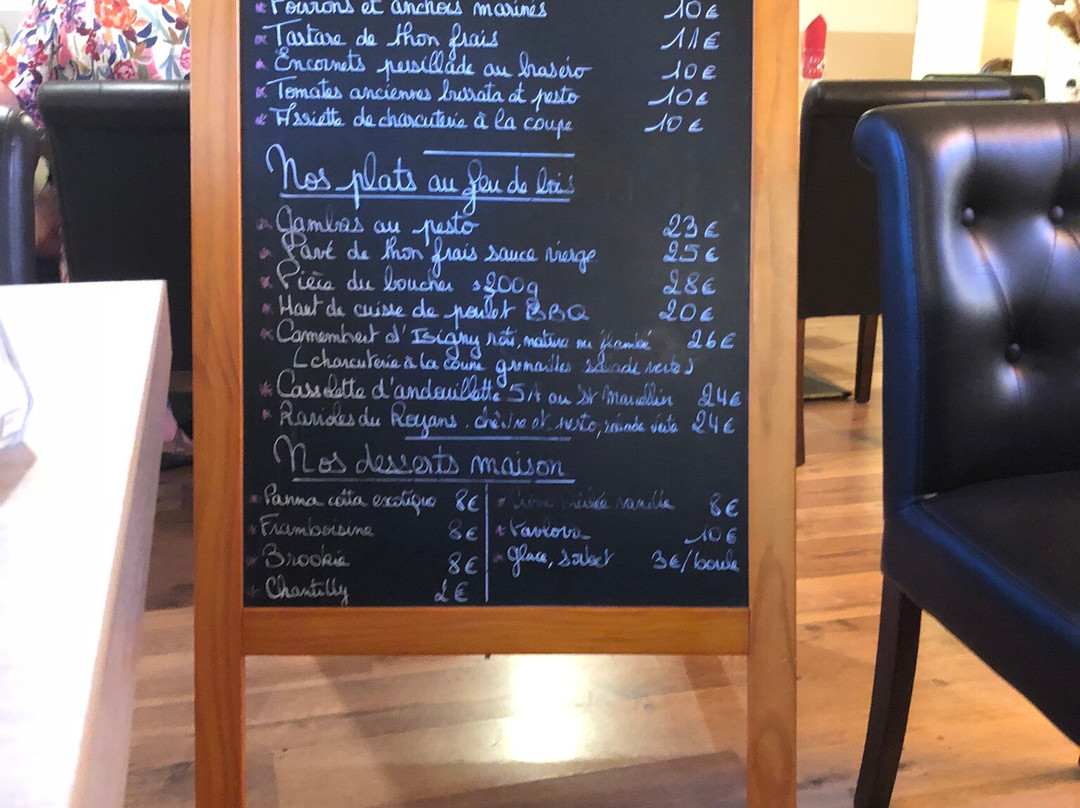 Poivrons et anchois marinés 10€
Tartare de thon frais 11€
Encornets persillade au braséro 10€
Tomates anciennes burrata et pesto 10€
Assiette de charcuterie à la coupe 10€
Nos plats au feu de bois
Gambas au pesto 23€
Pavé de thon frais sauce vierge 25€
Pièce du boucher ±300g 28€
Haut de cuisse de poulet BBQ 20€
Camembert d'Isigny roti, nature ou flambé 26€
(charcuterie à la coupe grenailles salade verte)
Cassolette d'andouillette 5A au St Marcellin 24€
Ravioles du Royans, chèvre et pesto, salade verte 24€
Nos desserts maison
Panna cotta exotique 8€
Framboisine 8€
Brookie 8€
Chantilly 2€
Crème brûlée vanille 8€
Pavlova 10€
Glace, sorbet 3€/boule